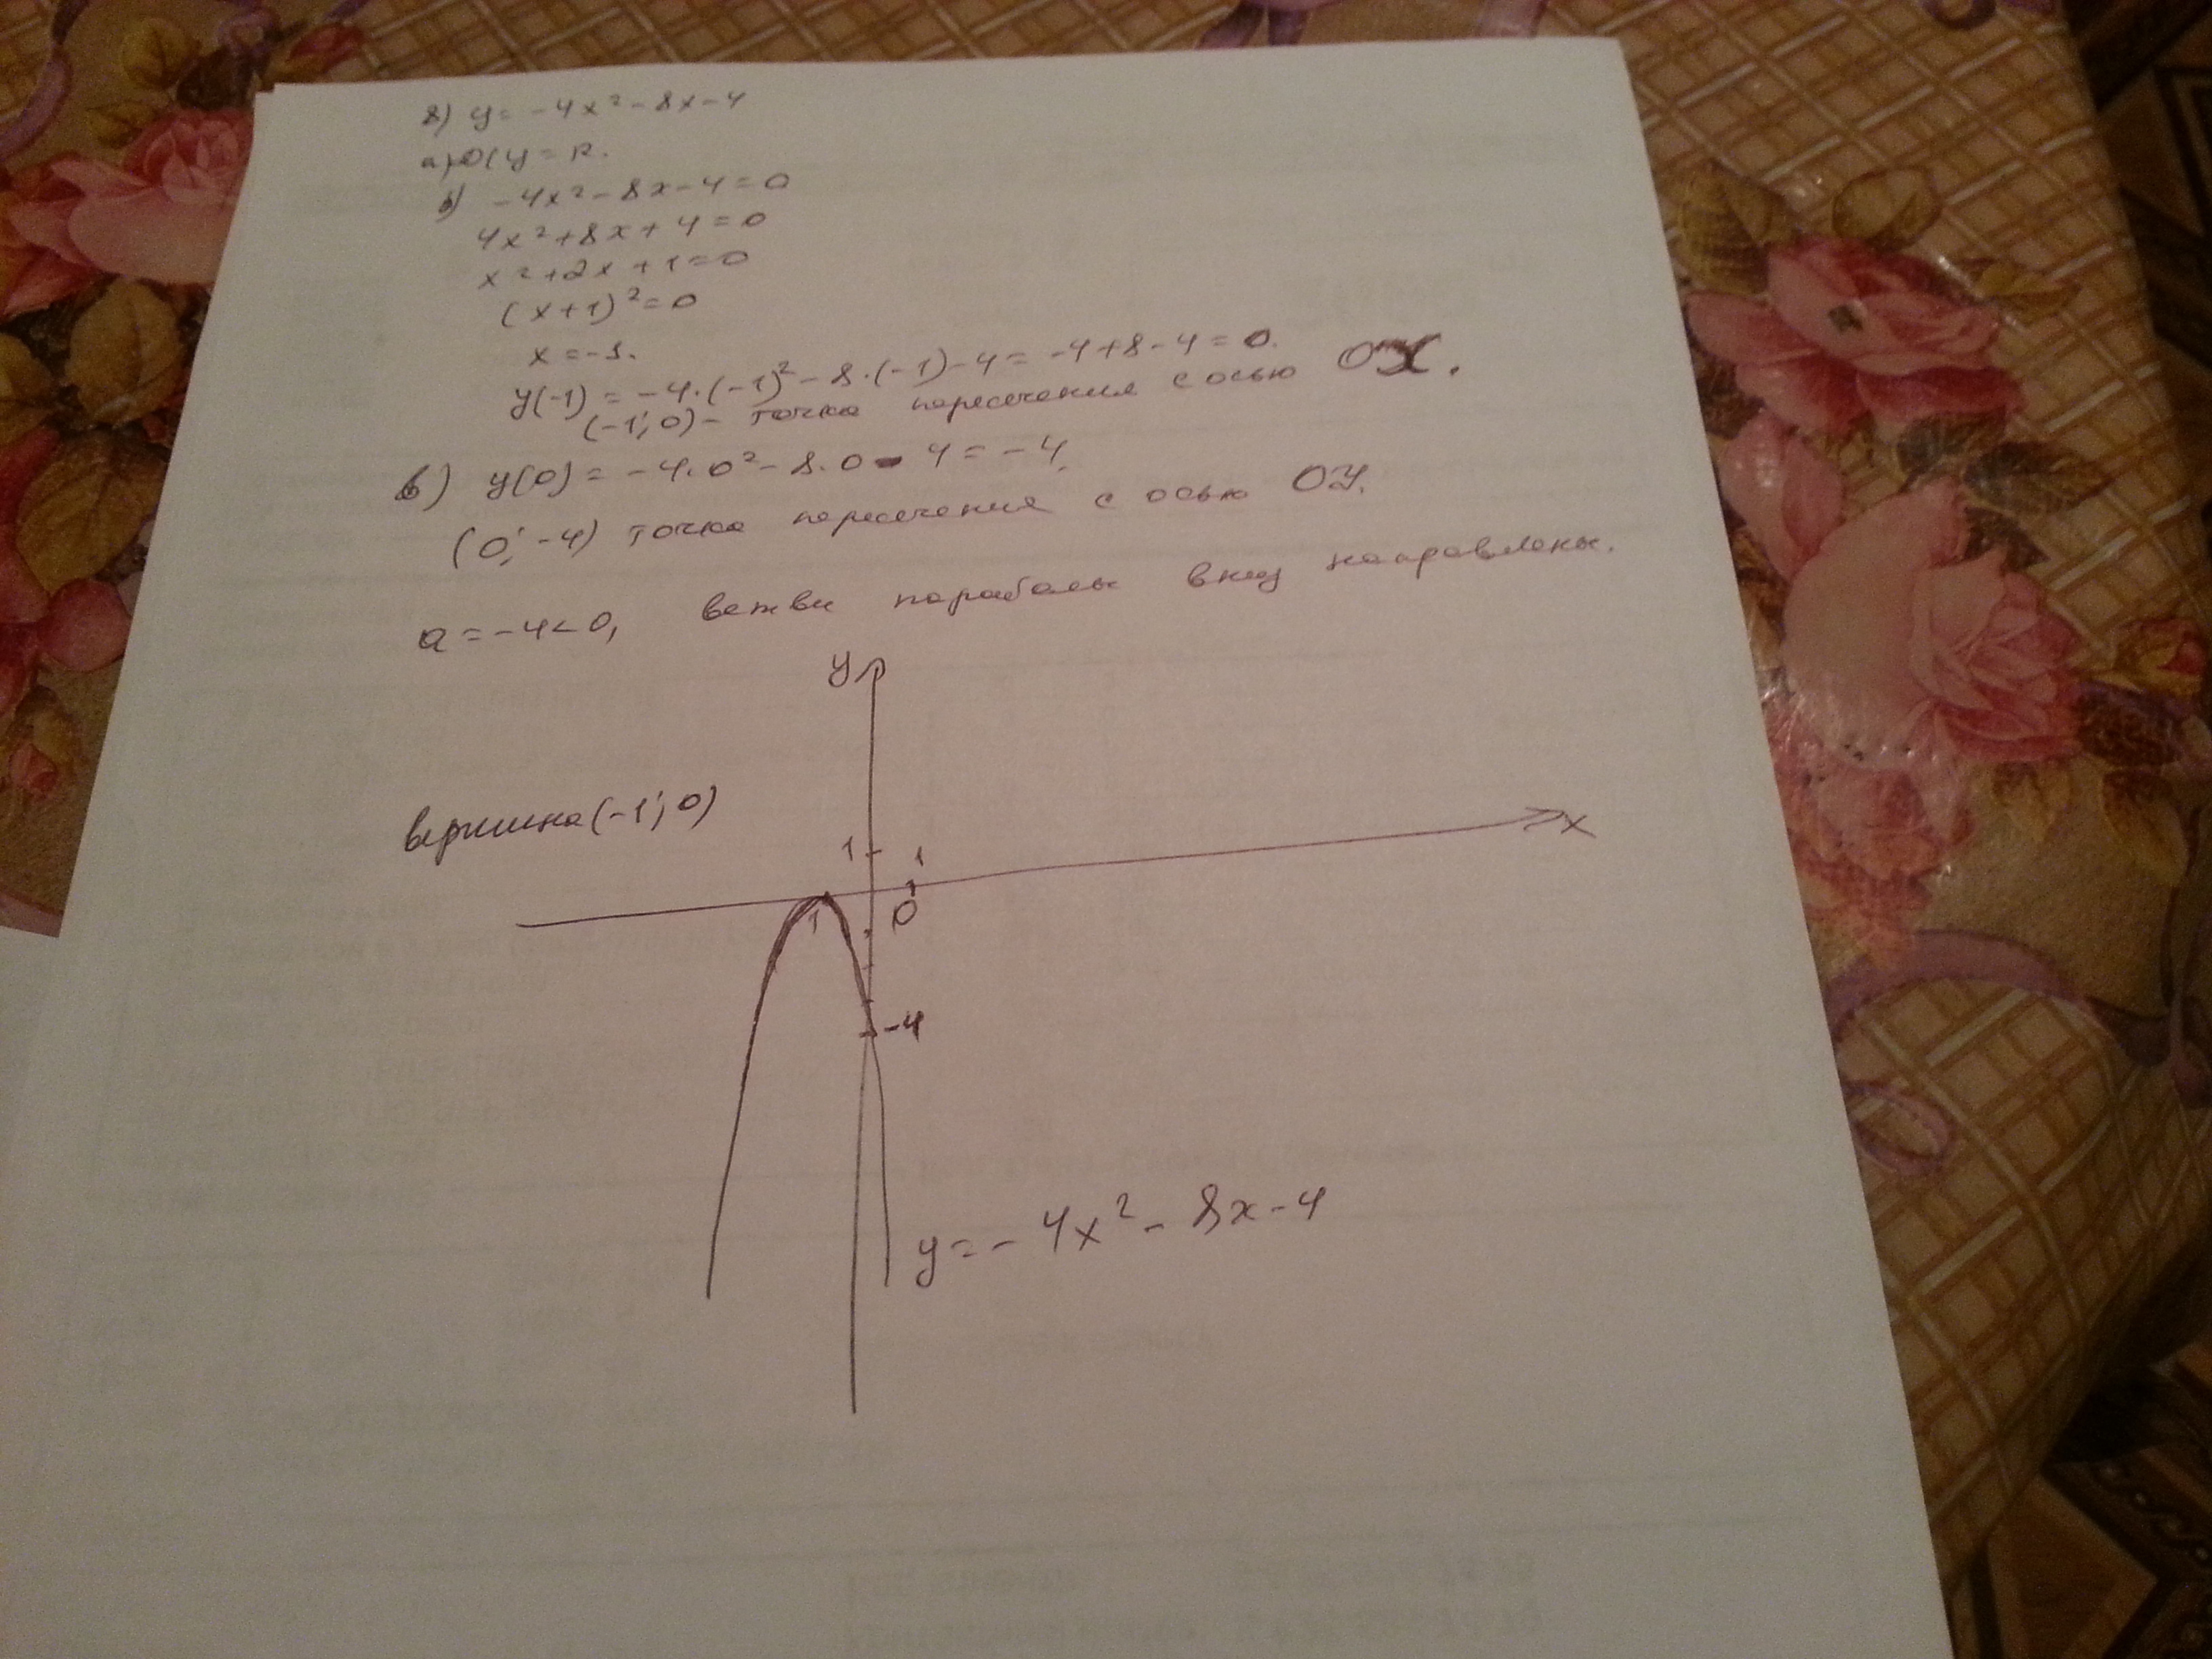 8) y = -4x² - 8x - 4
a) D(y = R.
б) -4x² - 8x - 4 = 0
4x² + 8x + 4 = 0
x² + 2x + 1 = 0
(x+1)² = 0
x = -1.
y(-1) = -4·(-1)² - 8·(-1) - 4 = -4+8-4 = 0.
(-1; 0) - точка пересечения с осью OX.
в) y(0) = -4·0² - 8·0 - 4 = -4.
(0; -4) точка пересечения с осью OY.
a = -4 < 0, ветви параболы вниз направлены.
y
вершина (-1; 0)
x
1 1
1 0
-4
y = -4x² - 8x - 4